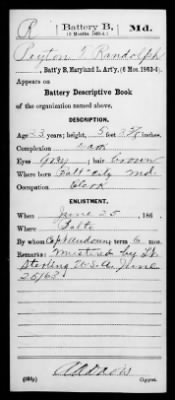 R | Battery B, | Md.
(6 Months 1863-4.)
Peyton T Randolph
, Batt'y B, Maryland L. Art'y, (6 Mos. 1863-4).
Appears on
Battery Descriptive Book
of the organization named above.
DESCRIPTION.
Age 23 years; height, 5 feet 3 7/8 inches.
Complexion Dark
Eyes Gray ; hair brown
Where born Balt City Md.
Occupation Clerk
ENLISTMENT.
When June 25, 186 .
Where Balto
By whom Capt term 6 mos.
Remarks: Mustered by Lt.
Sterling U.S.A. June
25/63
Copyist.